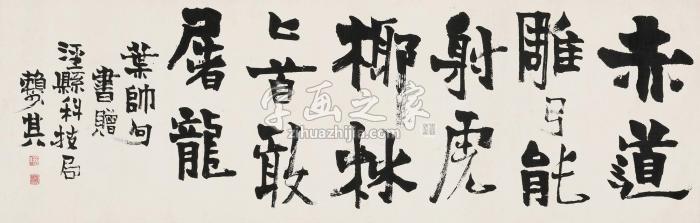 赤道
雕弓能
射虎
椰林
匕首敢
屠龍
葉帥句
書贈
涇縣科技局
賴少其
字画之家
zihuazhijia.com